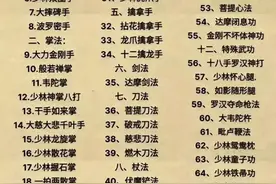 7.大摔碑手
8.波罗密手
二、掌法:
9.大力金刚手
10.般若神掌
11.韦陀掌
12.少林神掌八打
13.干手如来掌
14.大慈大悲千叶手
15.少林龙旋掌
16.少林散花掌
17.少林握石掌
五、擒拿手
32、拈花擒拿手
33、龙爪擒拿手
34、十二擒龙手
六、剑法
35、达摩剑法
七、刀法
36、菩提刀法
37、破戒刀法
38、慈悲刀法
39、燃木刀法
八、杖法
40、伏魔铲法
53、菩提心法
54、达摩闭息功
55、金刚不坏体神功
十二、特殊武功
56、十八手罗汉神打
57、少林怀心腿
58、如影随形腿
59、罗汉夺命枪法
60、大韦陀杵
61、毗卢鞭法
62、少林鸳鸯枕
63、少林童子功
64、少林铁帚功